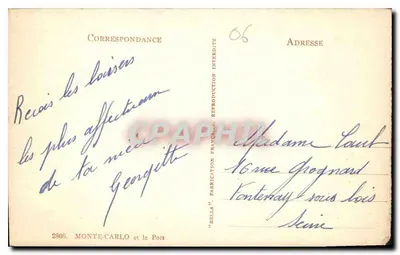 CORRESPONDANCE
ADRESSE
06
Reçois les baisers
les plus affectueux
de ta nièce
Georgette
"BELLA" FABRICATION FRANÇAISE REPRODUCTION INTERDITE
CPAPHIL
Madame
16 rue Grognard
Fontenay sous bois
Seine
2806. MONTE-CARLO et le Port